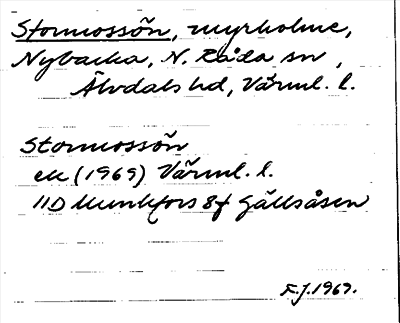 Stormossön, myrholme,
Nybacka, N. Råda sn,
Älvdals hd, Värml. l.
Stormossön
ek (1969) Värml. l.
11D Munkfors 8f Gällsåsen
F.J. 1969.